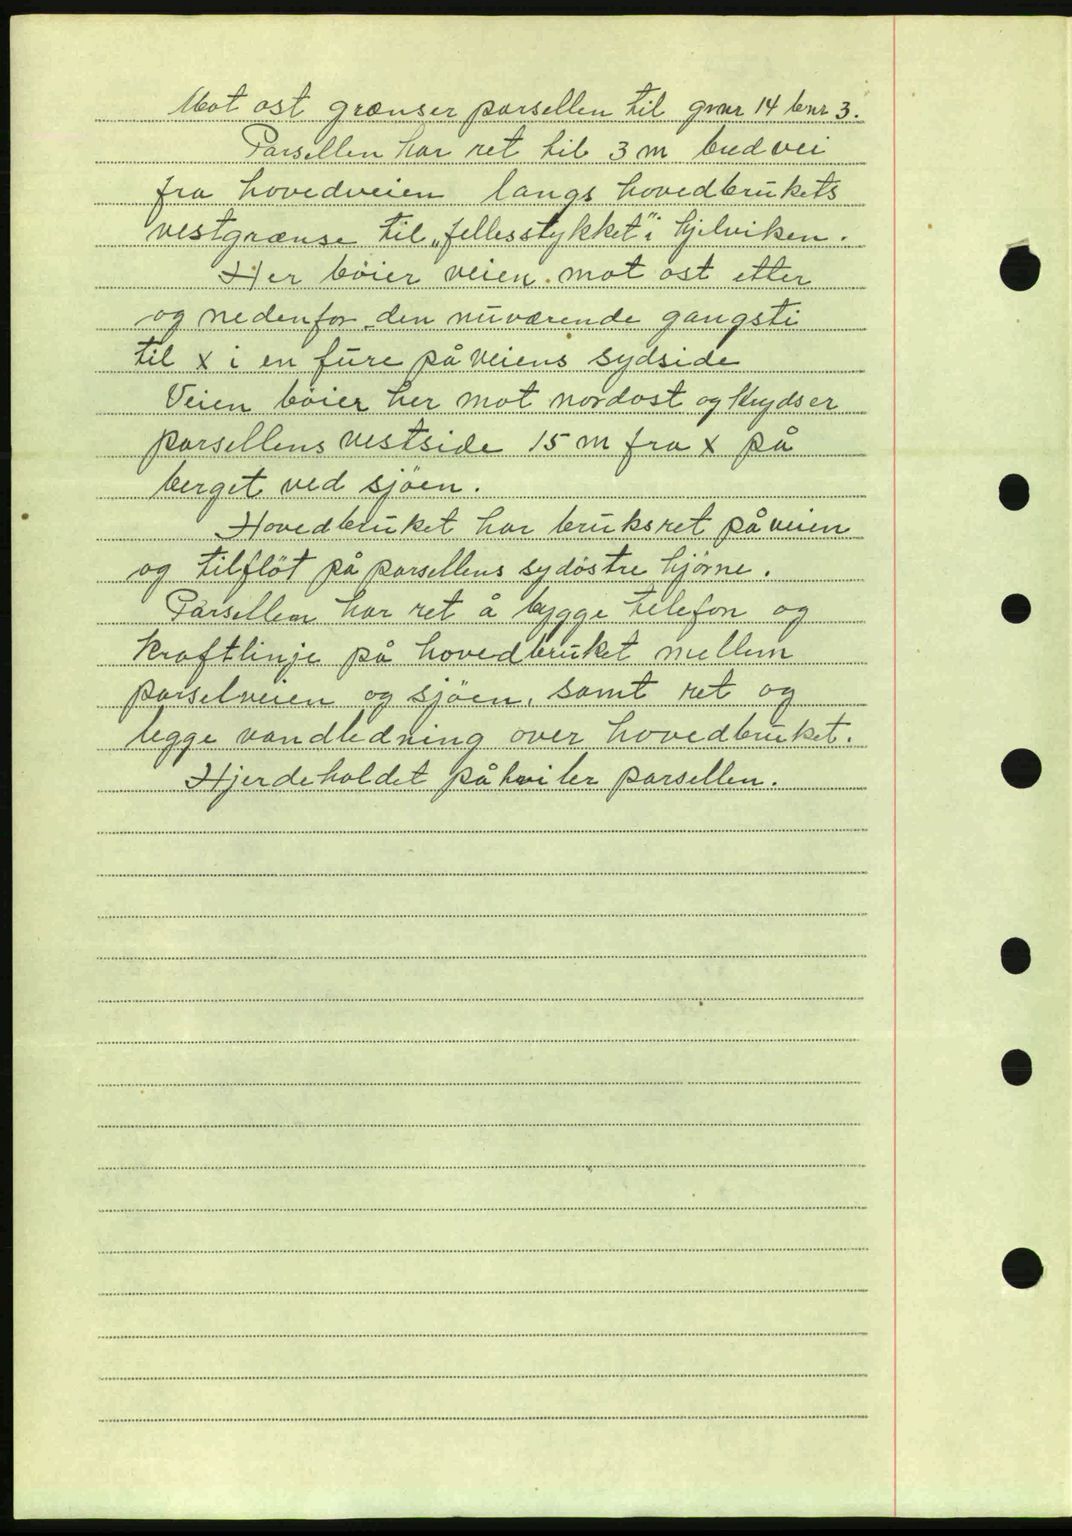 Mot øst grænser parsellen til gnr 14 bnr 3.
Parsellen har ret til 3 m bred vei
fra hovedveien langs hovedbrukets
vestgrænse til „fellesstykket" i Hjelviken.
Her bøier veien mot øst etter
og nedenfor den nuværende gangsti
til x i en fure på veiens sydside
Veien bøier her mot nordøst og krydser
parsellens vestside 15 m fra x på
berget ved sjöen.
Hovedbruket har bruksret på veien
og tilflöt på parsellens sydöstre hjörne.
Parsellen har ret å bygge telefon og
kraftlinje på hovedbruket mellem
parselveien og sjöen, samt ret og
legge vandledning over hovedbruket.
Hjerdeholdet påhviler parsellen.